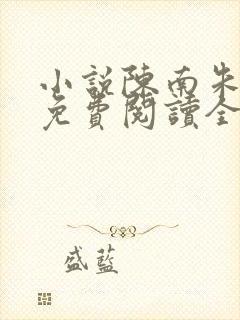 小說陳南朱
免費閱讀全
盛藍